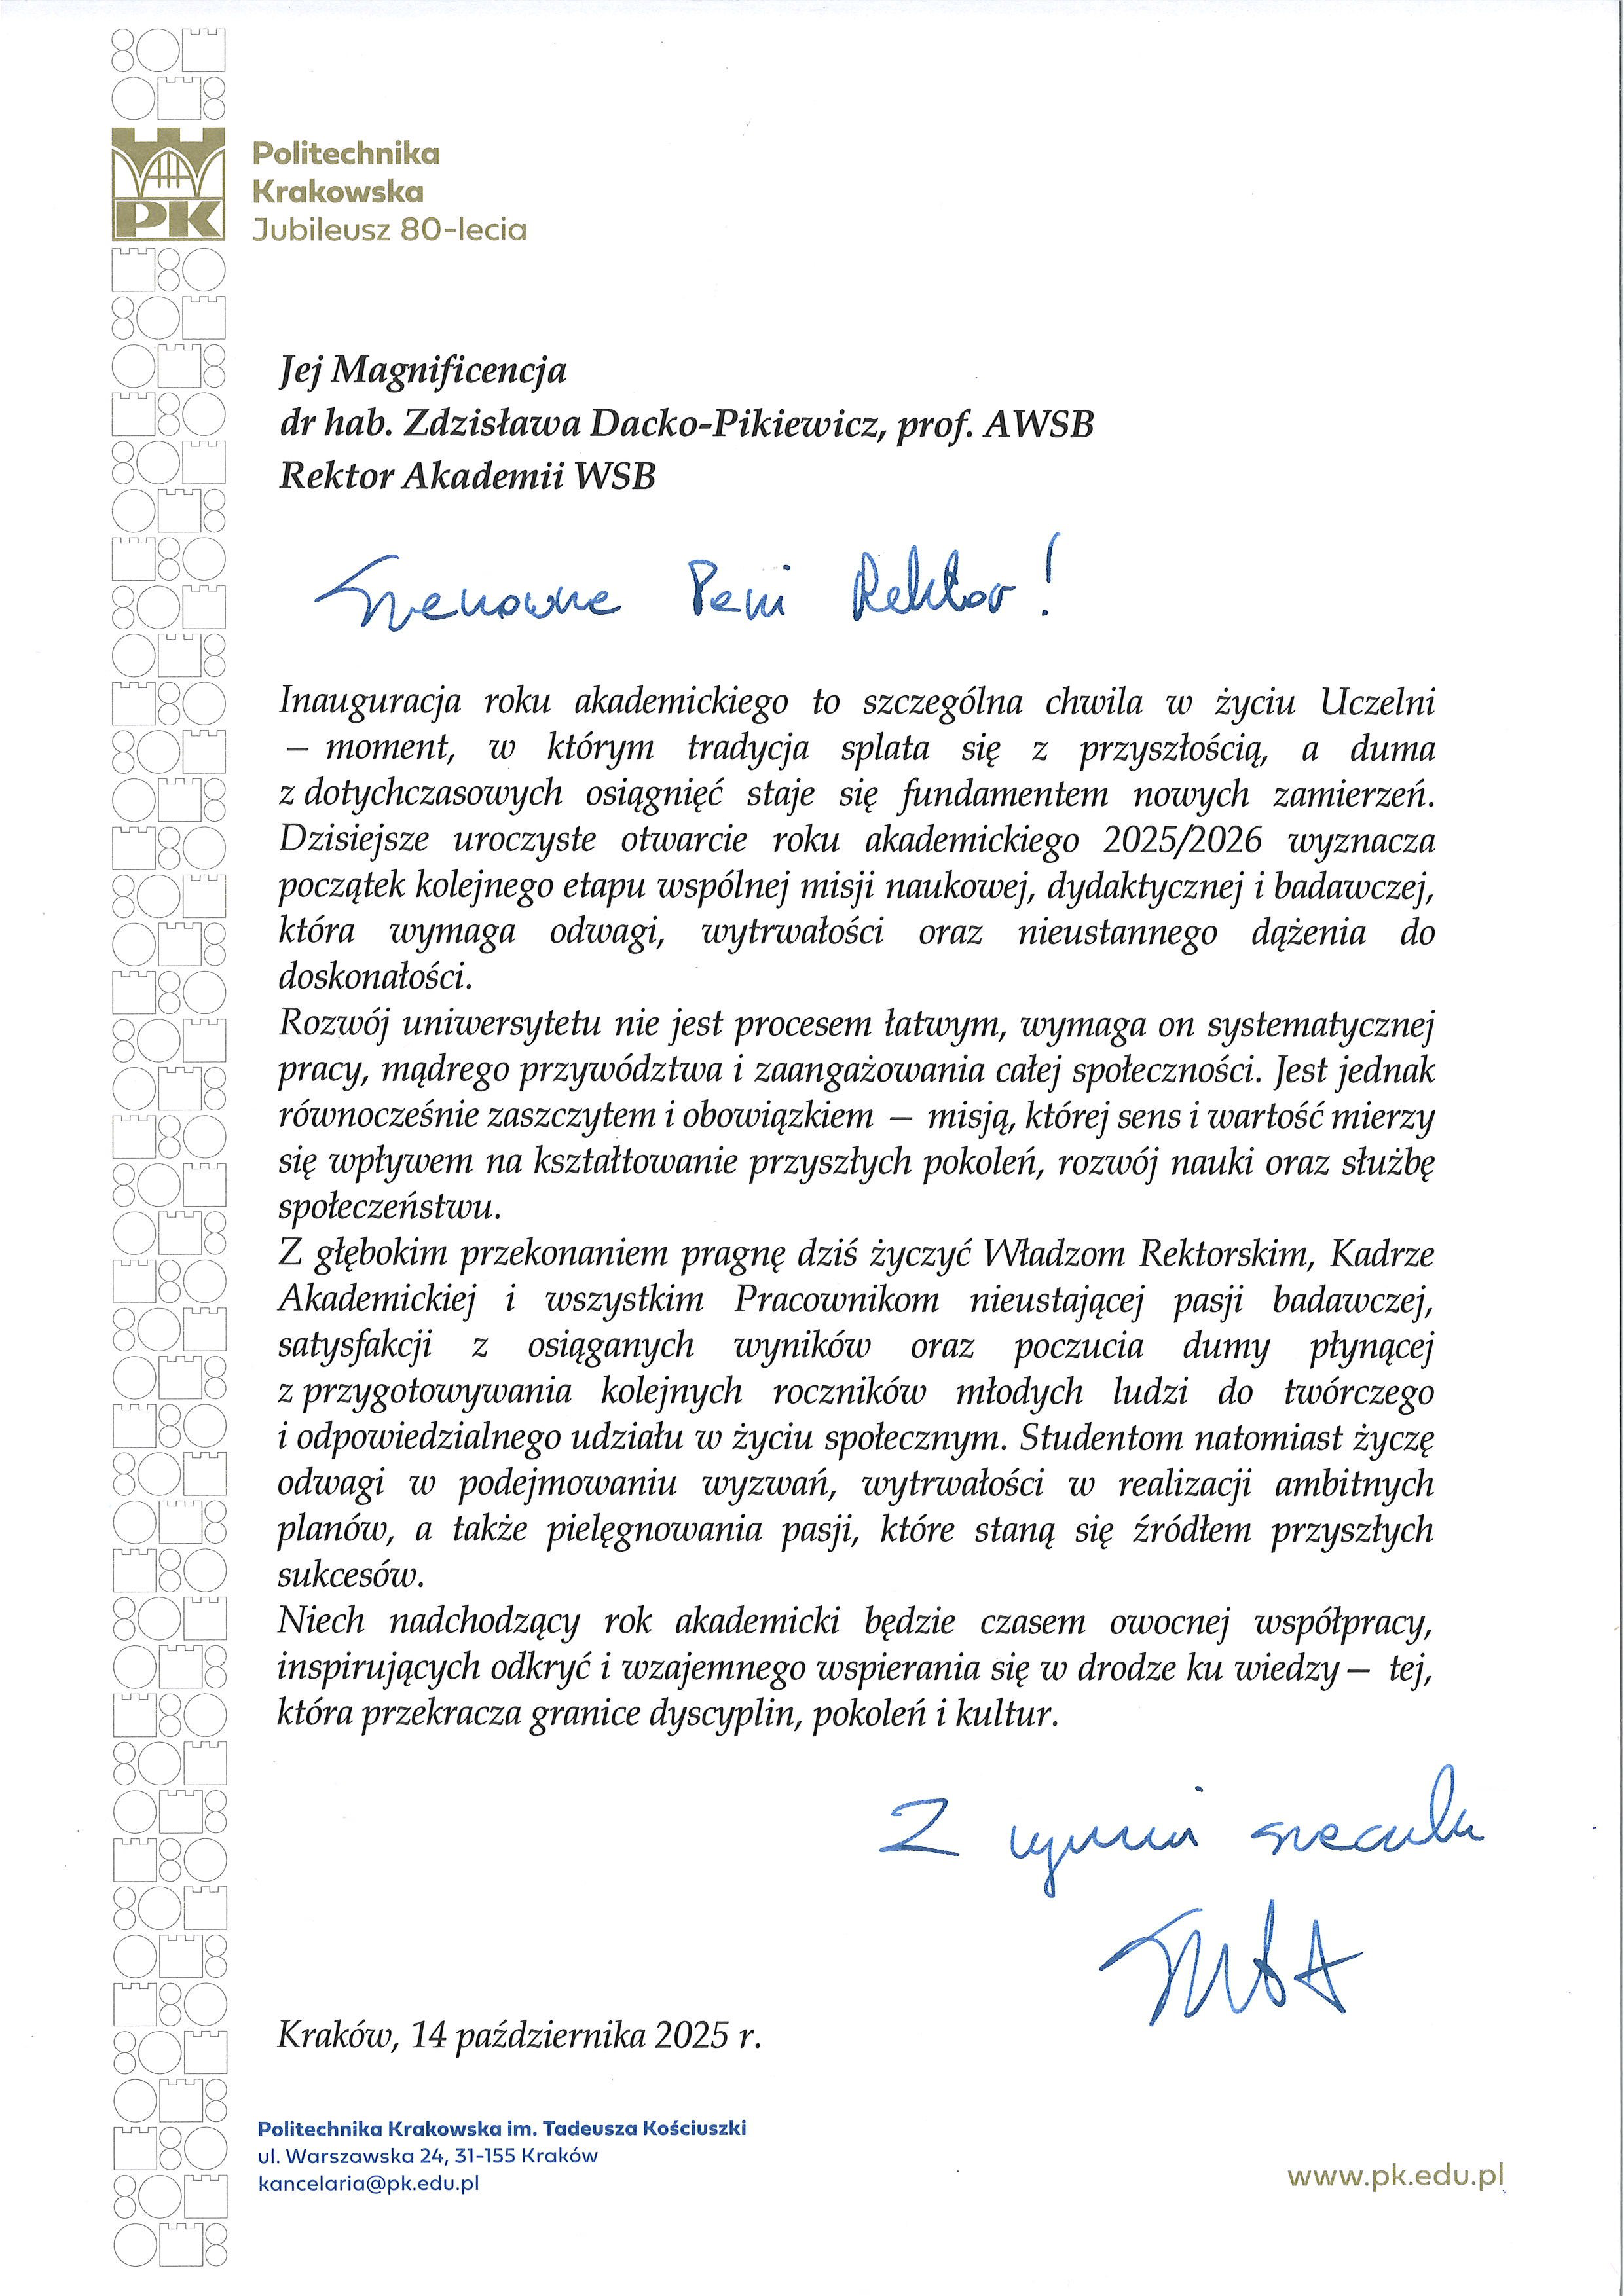 Politechnika
Krakowska
Jubileusz 80-lecia
PK
Jej Magnificencja
dr hab. Zdzisława Dacko-Pikiewicz, prof. AWSB
Rektor Akademii WSB
Szanowna Pani Rektor!
Inauguracja roku akademickiego to szczególna chwila w życiu Uczelni
– moment, w którym tradycja splata się z przyszłością, a duma
z dotychczasowych osiągnięć staje się fundamentem nowych zamierzeń.
Dzisiejsze uroczyste otwarcie roku akademickiego 2025/2026 wyznacza
początek kolejnego etapu wspólnej misji naukowej, dydaktycznej i badawczej,
która wymaga odwagi, wytrwałości oraz nieustannego dążenia do
doskonałości.
Rozwój uniwersytetu nie jest procesem łatwym, wymaga on systematycznej
pracy, mądrego przywództwa i zaangażowania całej społeczności. Jest jednak
równocześnie zaszczytem i obowiązkiem – misją, której sens i wartość mierzy
się wpływem na kształtowanie przyszłych pokoleń, rozwój nauki oraz służbę
społeczeństwu.
Z głębokim przekonaniem pragnę dziś życzyć Władzom Rektorskim, Kadrze
Akademickiej i wszystkim Pracownikom nieustającej pasji badawczej,
satysfakcji z osiąganych wyników oraz poczucia dumy płynącej
z przygotowywania kolejnych roczników młodych ludzi do twórczego
i odpowiedzialnego udziału w życiu społecznym. Studentom natomiast życzę
odwagi w podejmowaniu wyzwań, wytrwałości w realizacji ambitnych
planów, a także pielęgnowania pasji, które staną się źródłem przyszłych
sukcesów.
Niech nadchodzący rok akademicki będzie czasem owocnej współpracy,
inspirujących odkryć i wzajemnego wspierania się w drodze ku wiedzy – tej,
która przekracza granice dyscyplin, pokoleń i kultur.
Z wyrazami szacunku
Kraków, 14 października 2025 r.
Politechnika Krakowska im. Tadeusza Kościuszki
ul. Warszawska 24, 31-155 Kraków
kancelaria@pk.edu.pl
www.pk.edu.pl